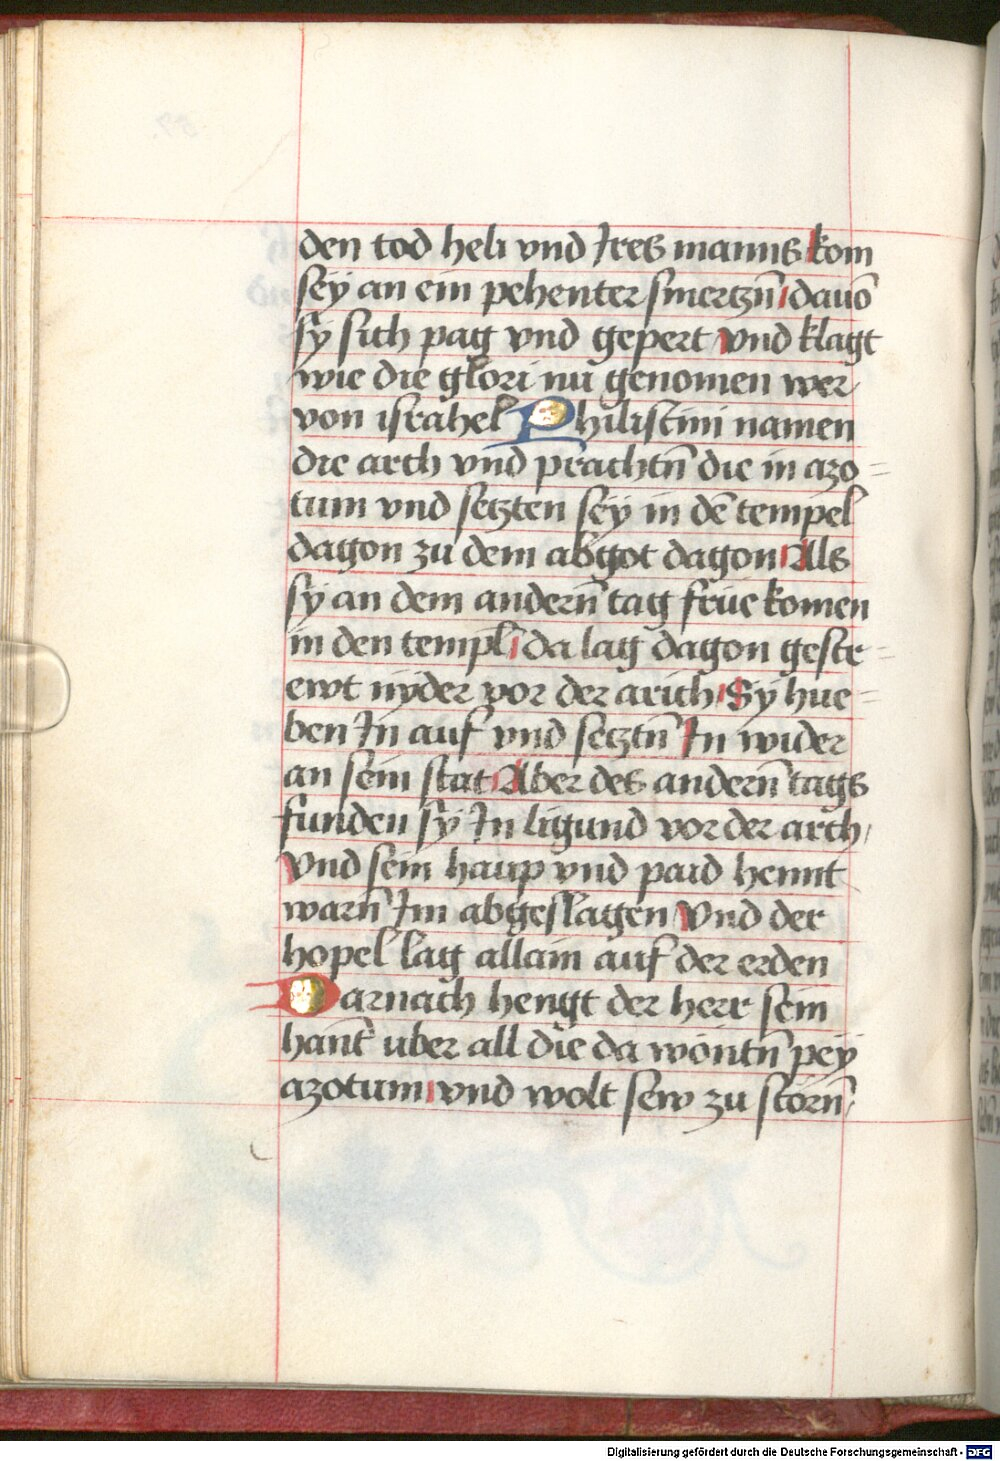 den tod heli vnd Jres manns kom
sey an ein pehenter smertzn̄ dauō
sy sich pag vnd gepert vnd klagt
wie die glori nu genomen wer
von israhel Philistini namen
die arch vnd prachtn̄ die in azo=
tum vnd setzten sey in dē tempel
dagon zu dem abgot dagon Als
sy an dem andern̄ tag frue komen
in den templ da lag dagon gestr=
ewt nyder vor der arich Sy hue=
ben Jn auf vnd setztn̄ Jn wider
an sein stat Aber des andern̄ tags
funden sy Jn ligund vor der arch
vnd sein haup vnd paid hennt
warn̄ Jm abgeslagen Vnd der
hopel lag allain auf der erden
Darnach hengt der herr sein
hant uber all die da wontn̄ pey
azotum vnd wolt sew zu störn̄
Digitalisierung gefördert durch die Deutsche Forschungsgemeinschaft - DFG